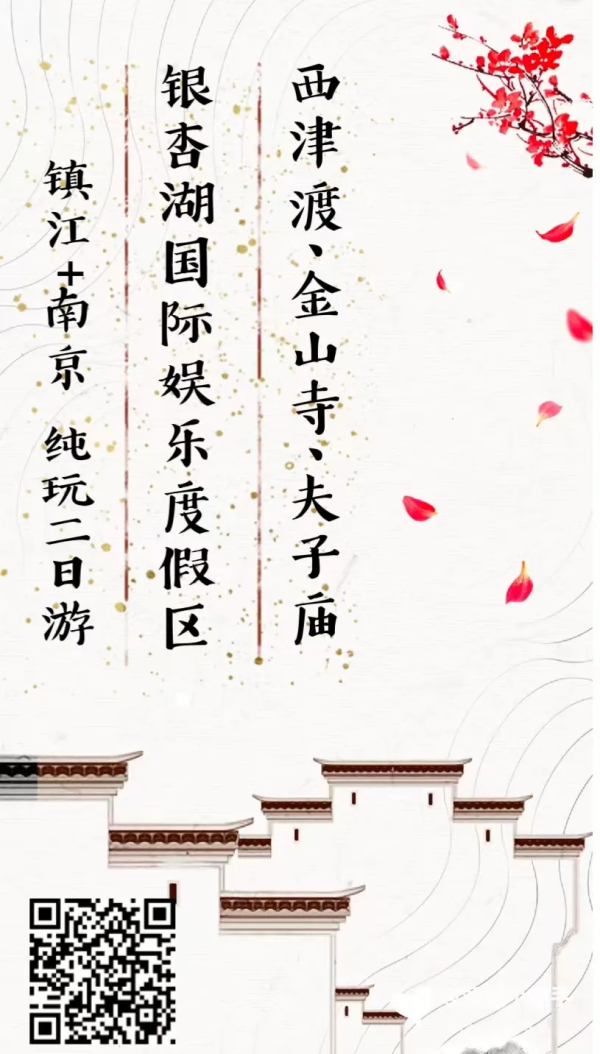 西津渡、金山寺、夫子庙
银杏湖国际娱乐度假区
镇江+南京 纯玩二日游